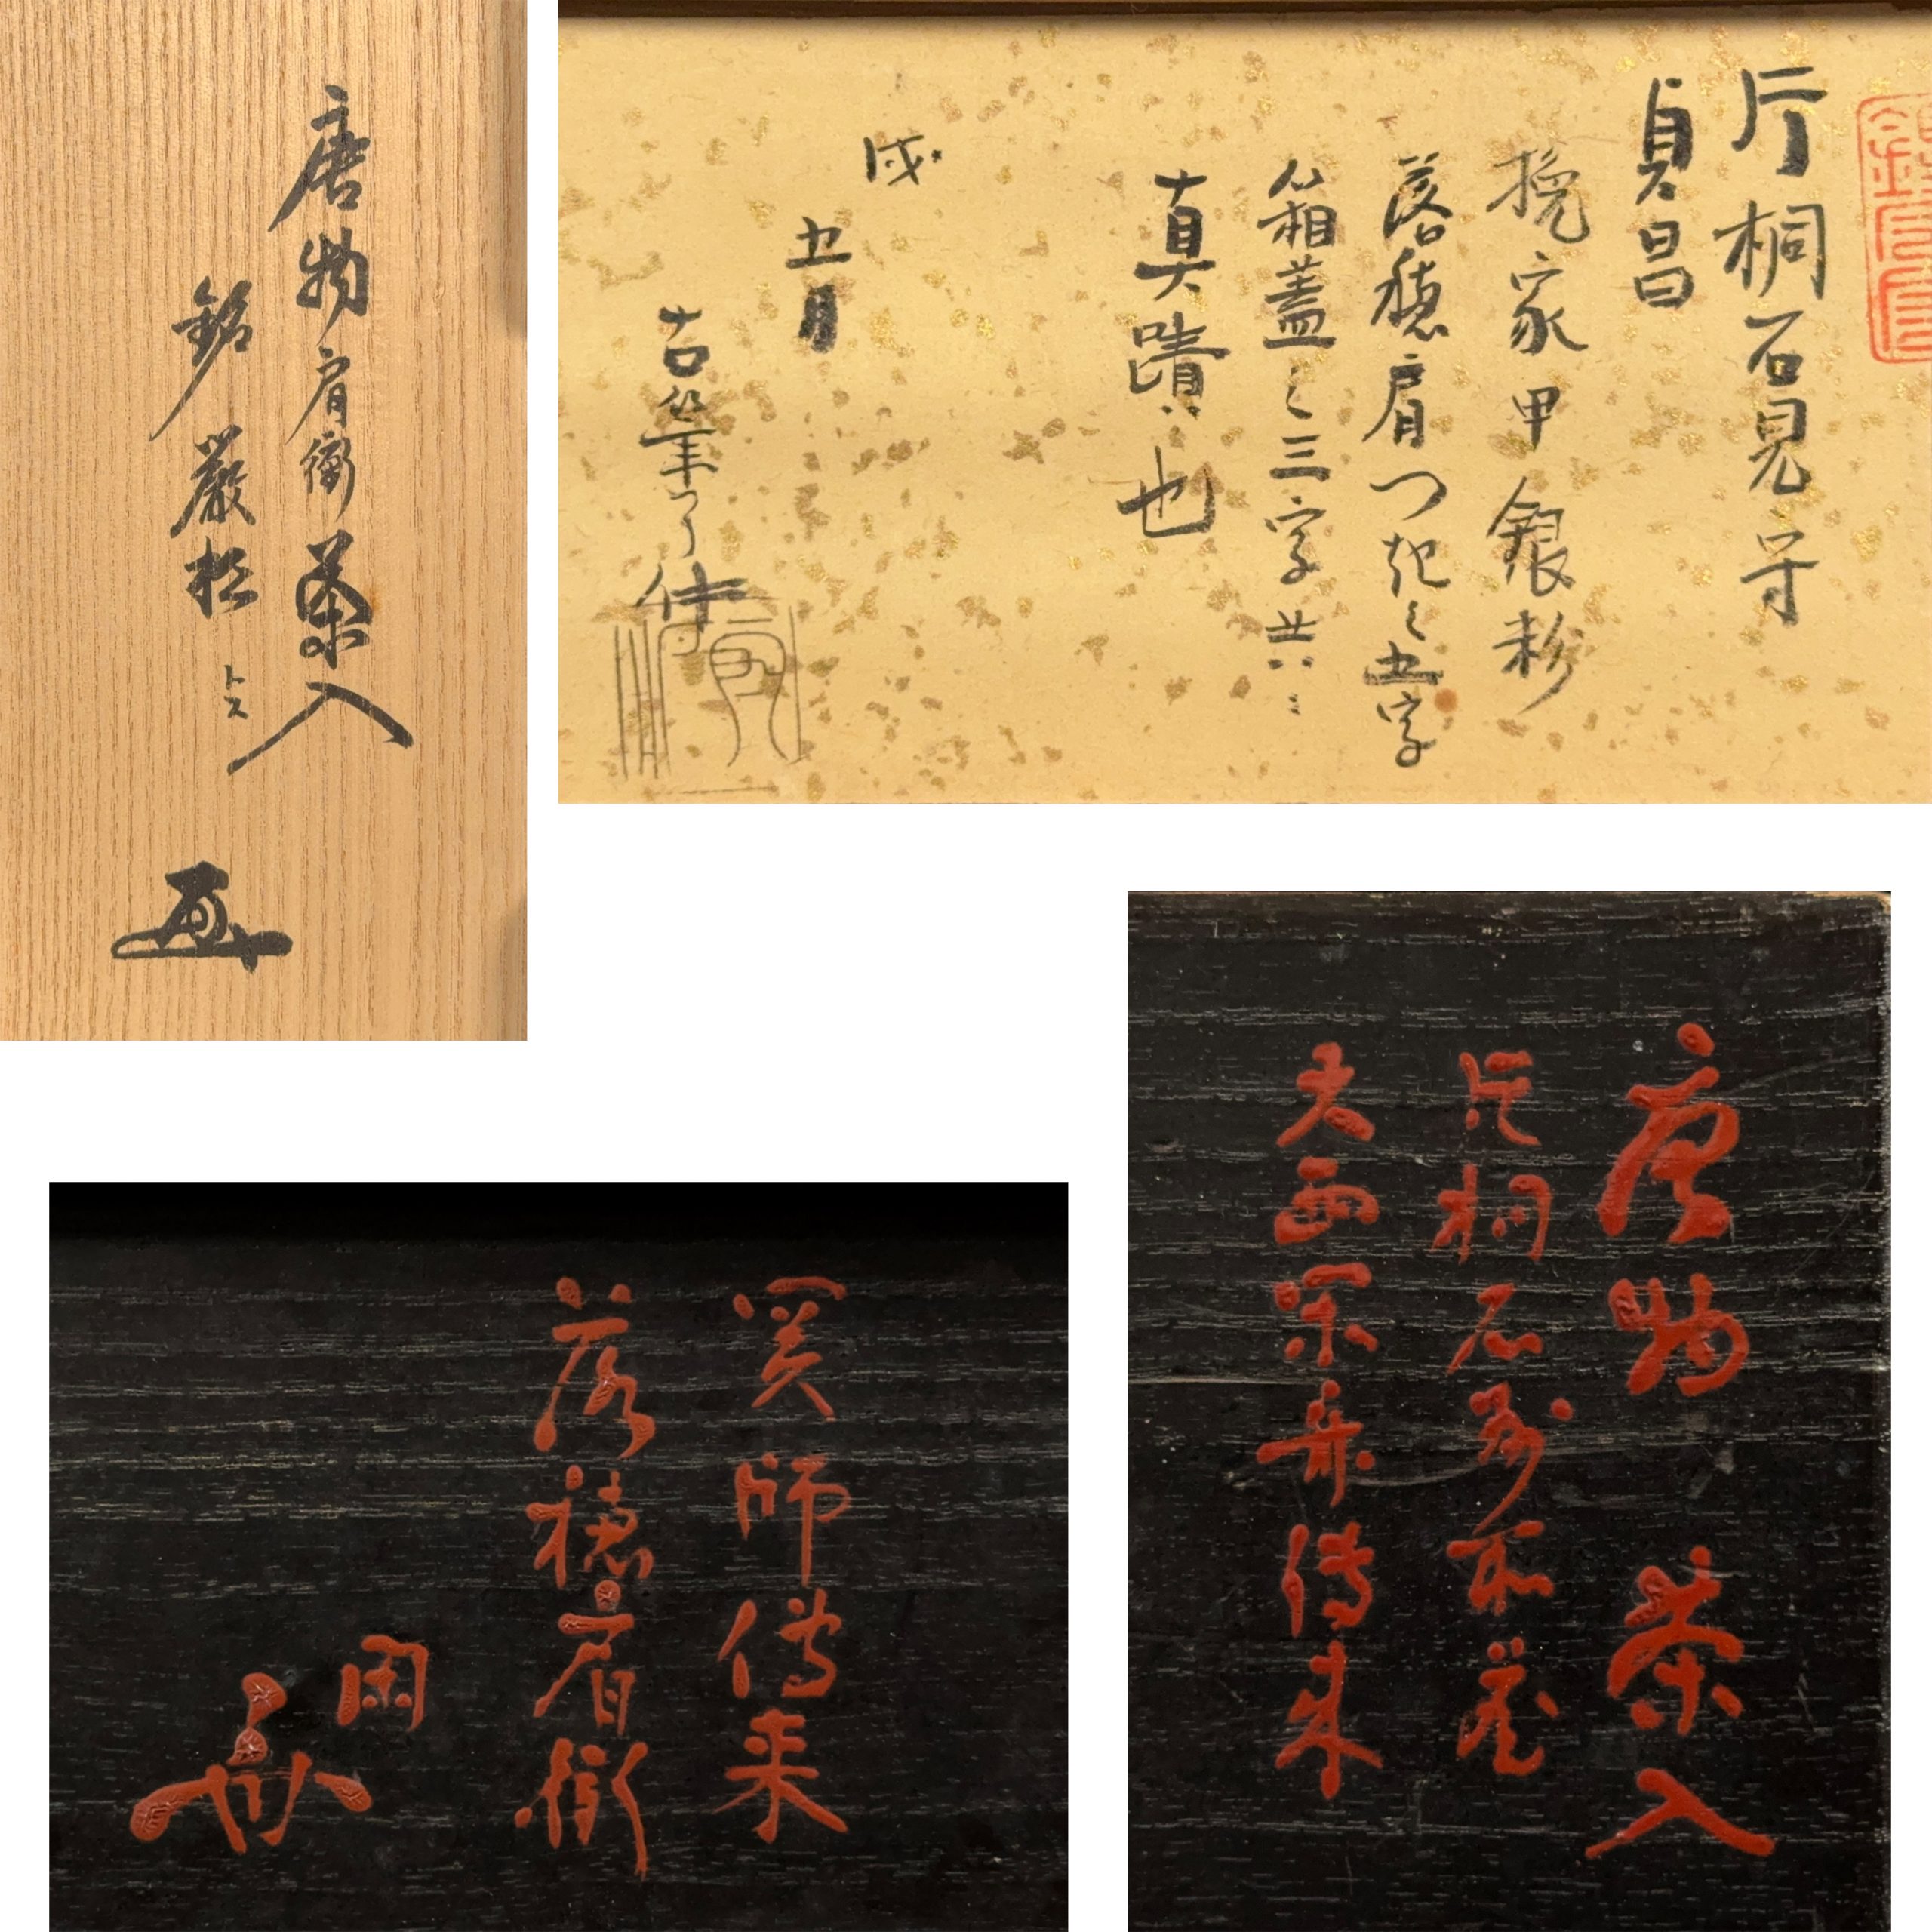 唐物肩衝茶入
銘 巌松 ト云
片桐石見守
貞昌
挽家甲銀粉
落穂肩つ起之五字
箱蓋之三字共ニ
真蹟也
戌
五月
古筆了仲
唐物 茶入
片桐石州所蔵
大西宗舟傳来
関師傳来
落穂肩衝
閑